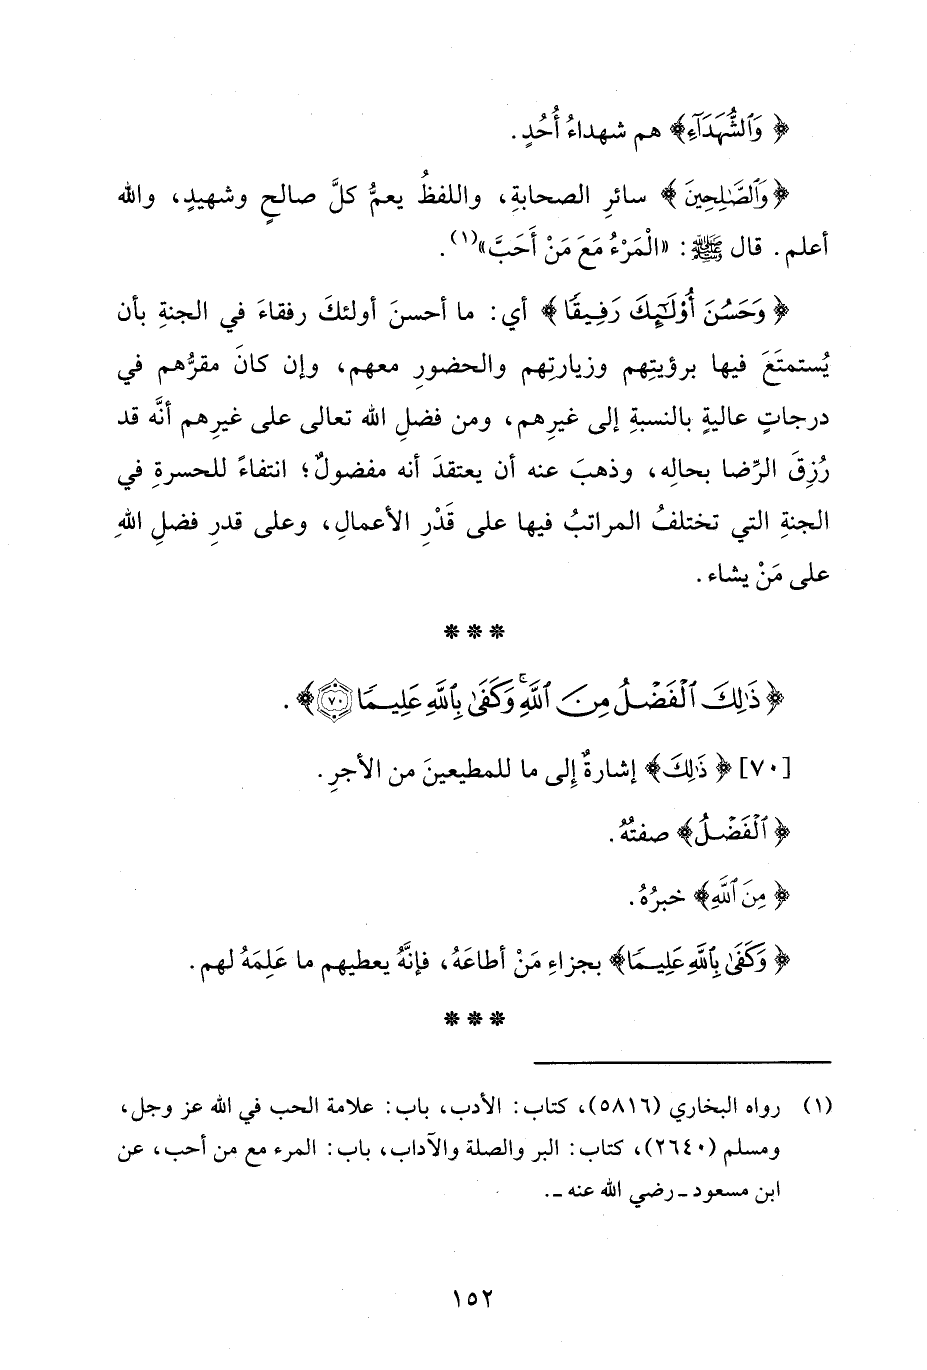 ﴿ وَٱلشُّهَدَآءِ﴾ هم شهداءُ أُحُدٍ.
﴿وَٱلصَّـٰلِحِينَ ﴾ سائرِ الصحابةِ، واللفظُ يعمُّ كلَّ صالحٍ وشهيدٍ، والله
أعلم. قال ﷺ: «الْمَرْءُ مَعَ مَنْ أَحَبَّ»(١).
﴿ وَحَسُنَ أُوْلَـٰٓئِكَ رَفِيقًا ﴾ أي: ما أحسنَ أولئكَ رفقاءَ في الجنةِ بأن
يُستمتَعَ فيها برؤيتِهم وزيارتِهم والحضورِ معهم، وإن كانَ مقرُّهم في
درجاتٍ عاليةٍ بالنسبةِ إلى غيرِهم، ومن فضلِ الله تعالى على غيرِهم أنَّه قد
رُزِقَ الرِّضا بحالِه، وذهبَ عنه أن يعتقدَ أنه مفضولٌ؛ انتفاءً للحسرةِ في
الجنةِ التي تختلفُ المراتبُ فيها على قَدْرِ الأعمالِ، وعلى قدرِ فضلِ اللهِ
على مَنْ يشاء.
***
﴿ ذَٰلِكَ ٱلْفَضْلُ مِنَ ٱللَّهِ ۚ وَكَفَىٰ بِٱللَّهِ عَلِيمًا ٧٠﴾.
[٧٠] ﴿ ذَٰلِكَ﴾ إشارةٌ إِلى ما للمطيعينَ من الأجرِ.
﴿ ٱلْفَضْلُ﴾ صفتُهُ.
﴿ مِنَ ٱللَّهِ﴾ خبرُهُ.
﴿ وَكَفَىٰ بِٱللَّهِ عَلِيمًا﴾ بجزاءِ مَنْ أطاعَهُ، فإنَّهُ يعطيهم ما عَلِمَهُ لهم.
***
(١) رواه البخاري (٥٨١٦)، كتاب: الأدب، باب: علامة الحب في الله عز وجل،
ومسلم (٢٦٤٠)، كتاب: البر والصلة والآداب، باب: المرء مع من أحب، عن
ابن مسعود ـ رضي الله عنه ـ.
١٥٢